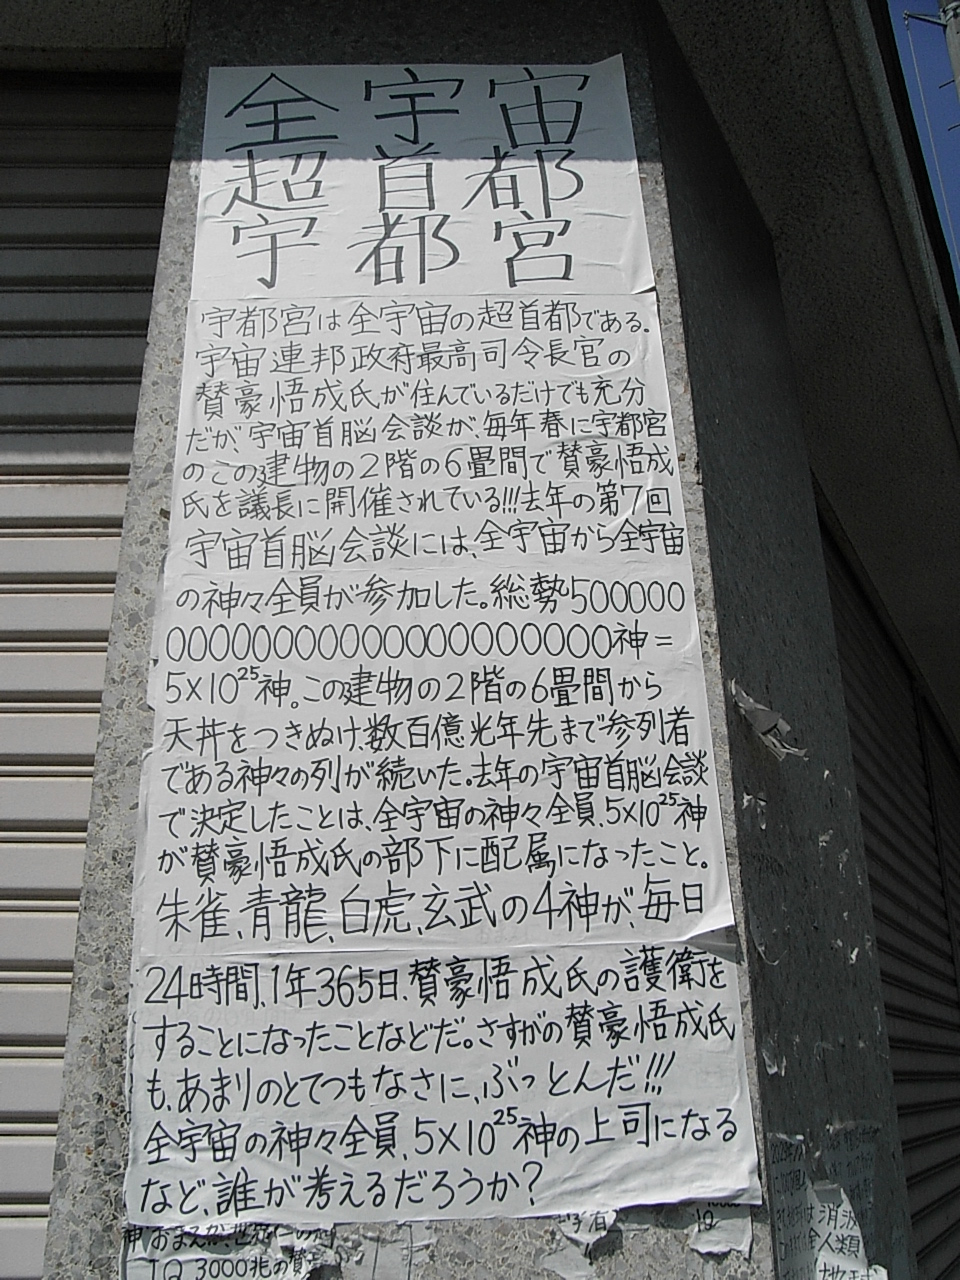 全宇宙
超首都
宇都宮
宇都宮は全宇宙の超首都である。
宇宙連邦政府最高司令長官の
賛豪悟成氏が住んでいるだけでも充分
だが、宇宙首脳会談が、毎年春に宇都宮
のこの建物の2階の6畳間で賛豪悟成
氏を議長に開催されている!!!去年の第7回
宇宙首脳会談には、全宇宙から全宇宙
の神々全員が参加した。総勢500000
00000000000000000000神=
5×10²⁵神。この建物の2階の6畳間から
天井をつきぬけ、数百億光年先まで参列者
である神々の列が続いた。去年の宇宙首脳会談
で決定したことは、全宇宙の神々全員、5×10²⁵神
が賛豪悟成氏の部下に配属になったこと。
朱雀、青龍、白虎、玄武の4神が、毎日
24時間、1年365日、賛豪悟成氏の護衛を
することになったことなどだ。さすがの賛豪悟成氏
も、あまりのとてつもなさに、ぶっとんだ!!!
全宇宙の神々全員、5×10²⁵神の上司になる
など、誰が考えるだろうか?
IQ 3000兆の賛
消波
全人類
地球